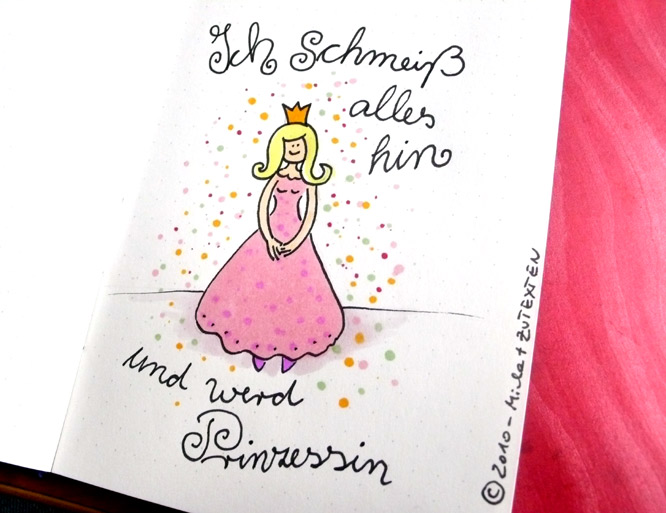 Ich Schmeiß
alles
hin
und werd
Prinzessin
© 2010 - Mila + ZUTEXTEN